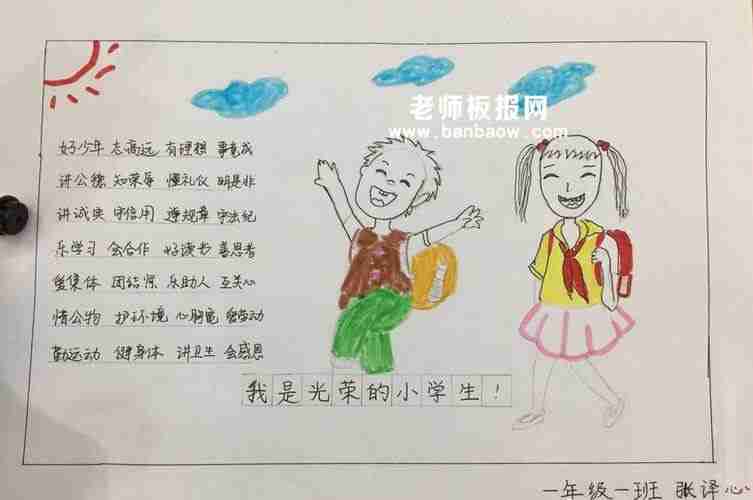 老师板报网
www.banbaow.com
好少年 志高远 有理想 事竟成
讲公德 知荣辱 懂礼仪 明是非
讲诚实 守信用 遵规章 守法纪
乐学习 会合作 好读书 善思考
爱集体 团结紧 乐助人 互关心
惜公物 护环境 心胸宽 爱劳动
勤运动 健身体 讲卫生 会感恩
我是光荣的小学生！
一年级一班 张译心